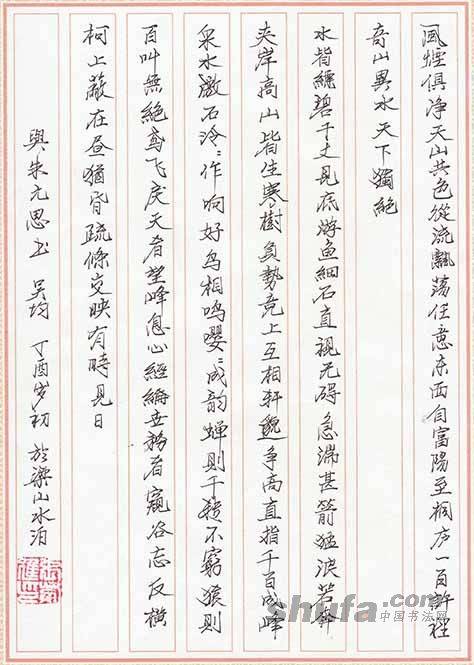 風煙俱净天山共色從流飄荡任意东西自富陽至桐庐一百許裡
奇山異水 天下獨絕
水皆縹碧千丈見底游鱼細石直視无碍急湍甚箭猛浪若奔
夹岸高山皆生寒樹負勢竞上互相軒邈争高直指千百成峰
泉水激石泠〻作响好鸟相鸣嘤〻成韵蝉則千转不窮猿則
百叫無絕鸢飞戾天者望峰息心經綸世務者窺谷忘反横
柯上蔽在昼猶昏疏條交映有時見日
與朱元思书 吴均 丁酉岁初 於梁山水泊
shufa.com
中国书法网